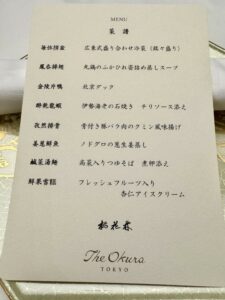 MENU
菜譜
広東式盛り合わせ冷菜（銘々盛り）
丸鶏のふかひれ姿詰め蒸しスープ
金陵片鴨 北京ダック
伊勢海老の石焼き チリソース添え
孜然排骨 骨付き豚バラ肉のクミン風味揚げ
姜葱鮮魚 ノドグロの葱生姜蒸し
鹹菜湯麺 高菜入りつゆそば 煮卵添え
鮮果雪糕 フレッシュフルーツ入り
杏仁アイスクリーム
桃花林
The Okura
TOKYO